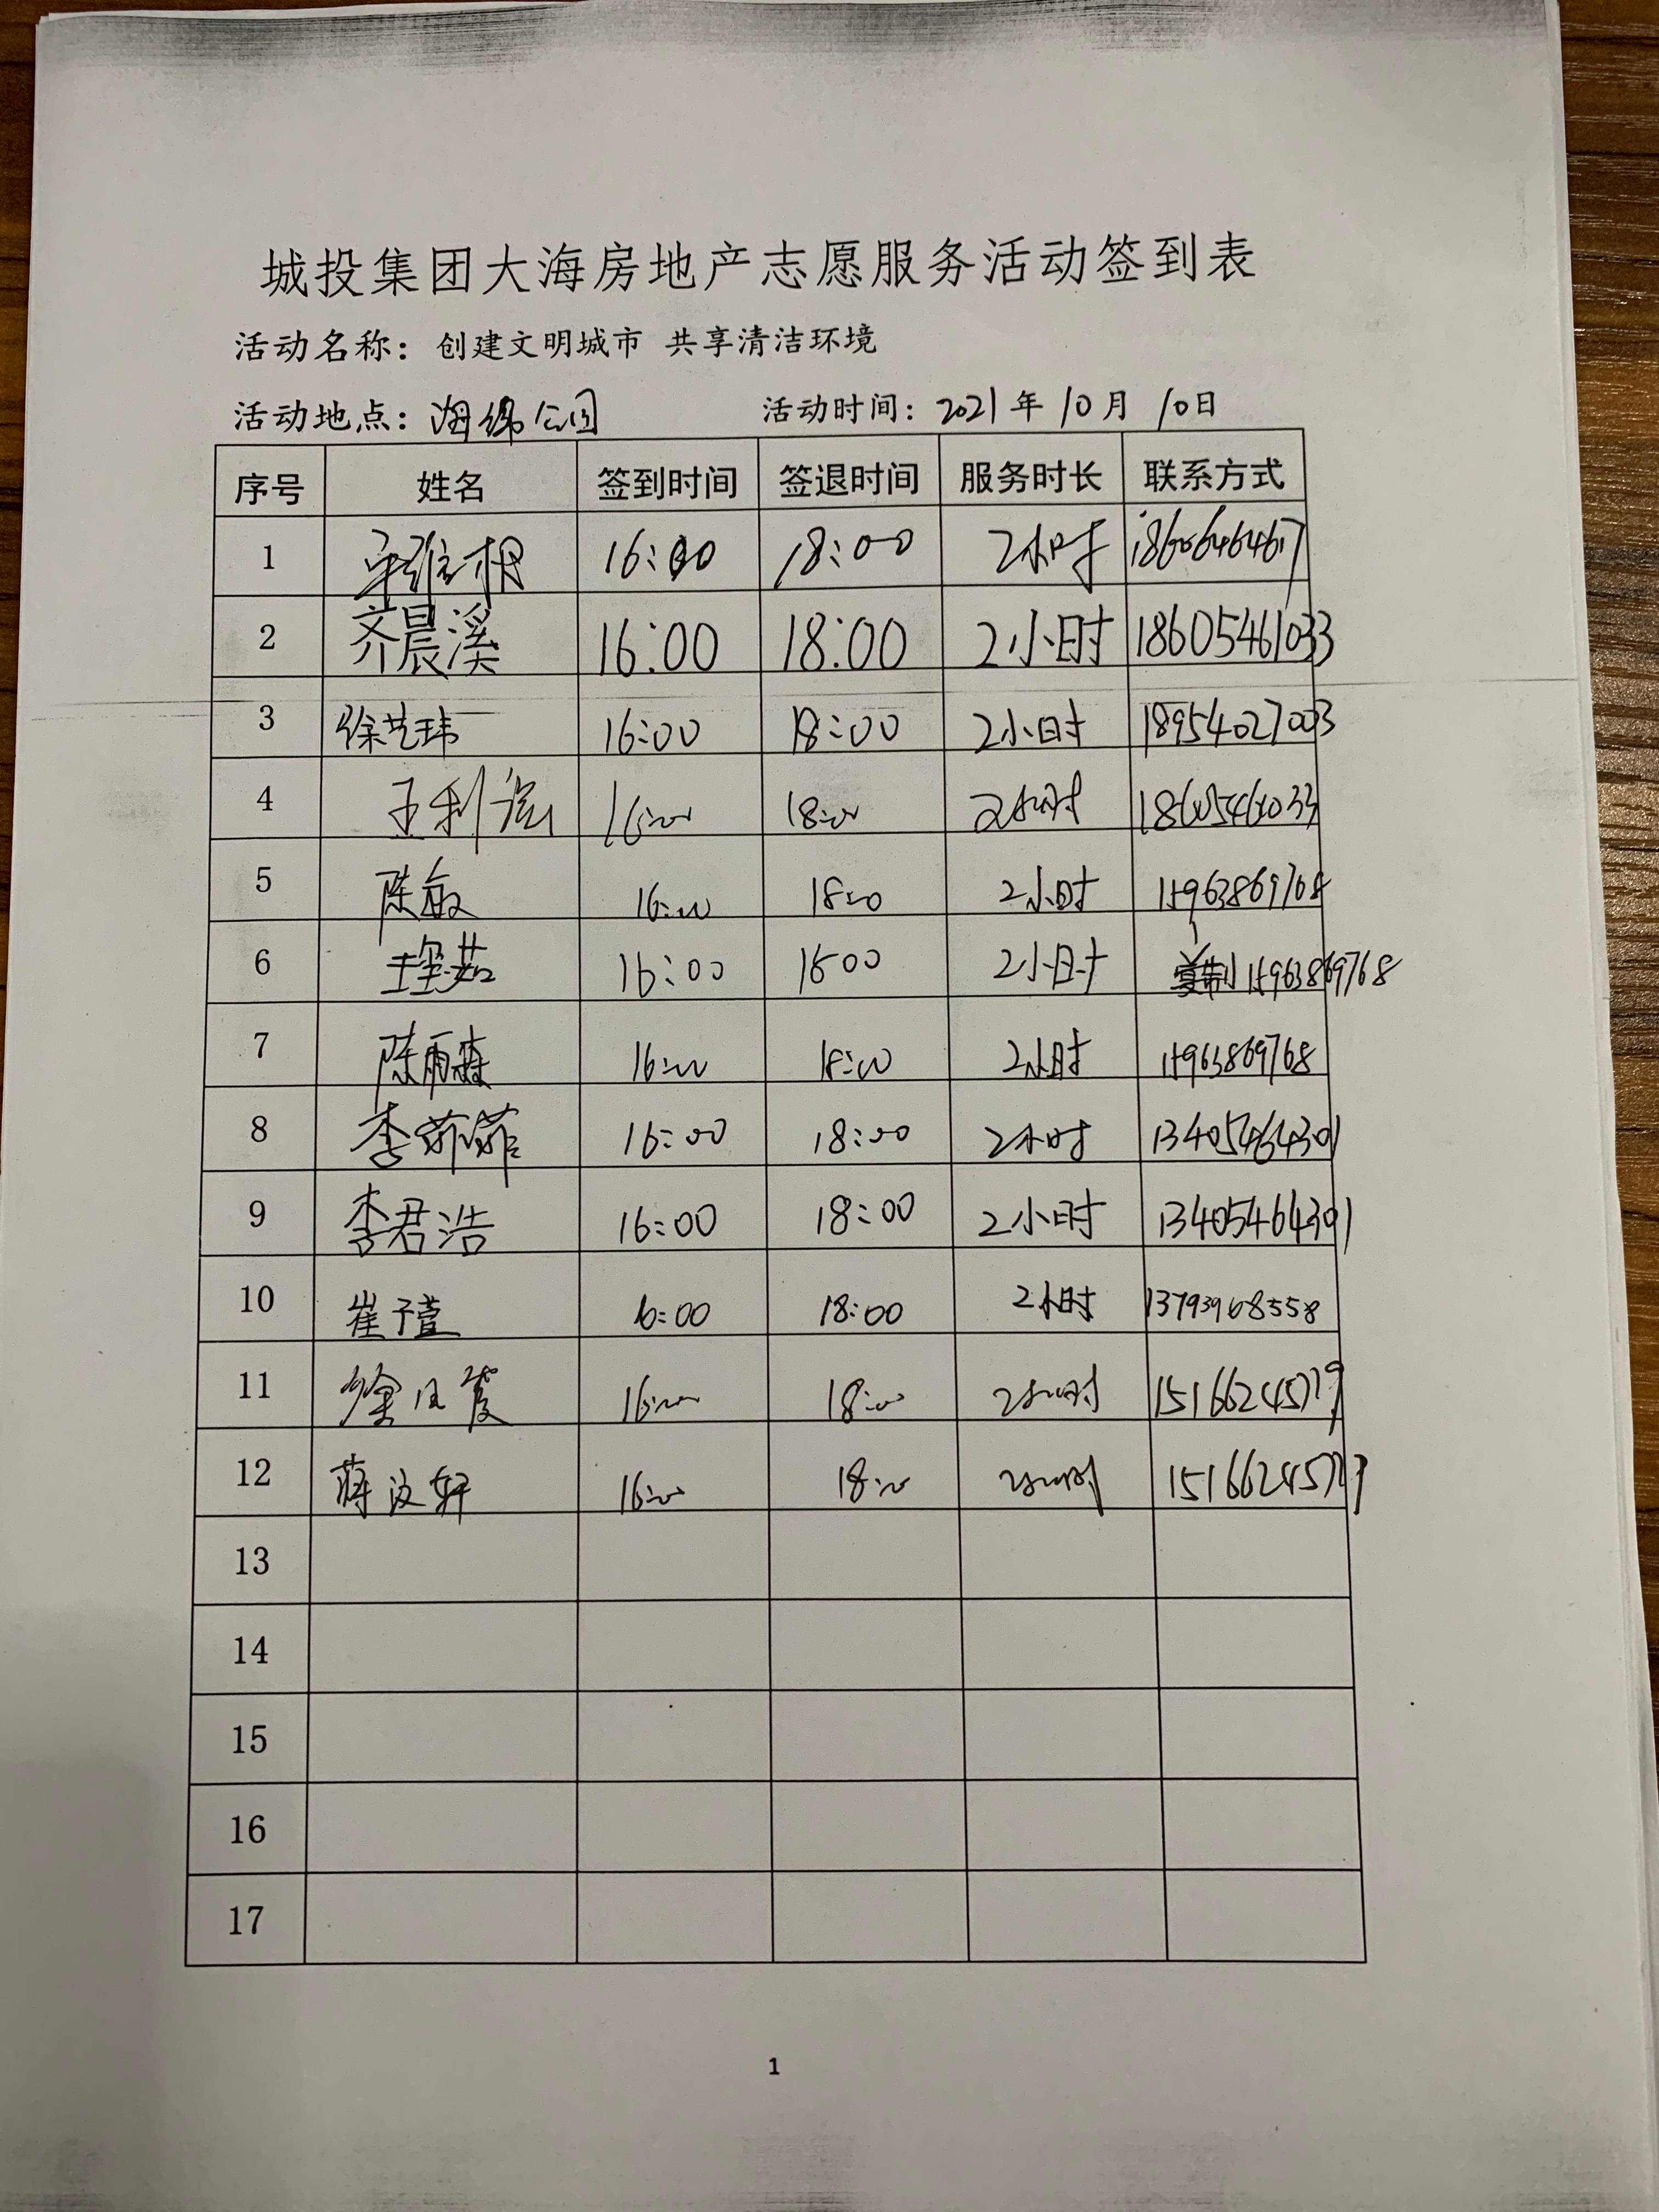 城投集团大海房地产志愿服务活动签到表
活动名称：创建文明城市 共享清洁环境
活动地点：海绵公园 活动时间：2021年10月10日
序号 姓名 签到时间 签退时间 服务时长 联系方式
1 16:00 18:00 2小时
2 齐晨溪 16:00 18:00 2小时 18605461033
3 徐艺玮 16:00 18:00 2小时 18954027003
4 王利 16:00 18:00 2小时 18605461033
5 陈敏 16:00 18:00 2小时 15963869768
6 16:00 1800 2小时 15963869768
7 陈雨森 16:00 18:00 2小时 15963869768
8 李菲菲 16:00 18:00 2小时 13405464301
9 李君浩 16:00 18:00 2小时 13405464301
10 崔子萱 16:00 18:00 2小时 13793968558
11 徐 16:00 18:00 2小时
12 蒋汶轩 16:00 18:00 2小时
13
14
15
16
17
1